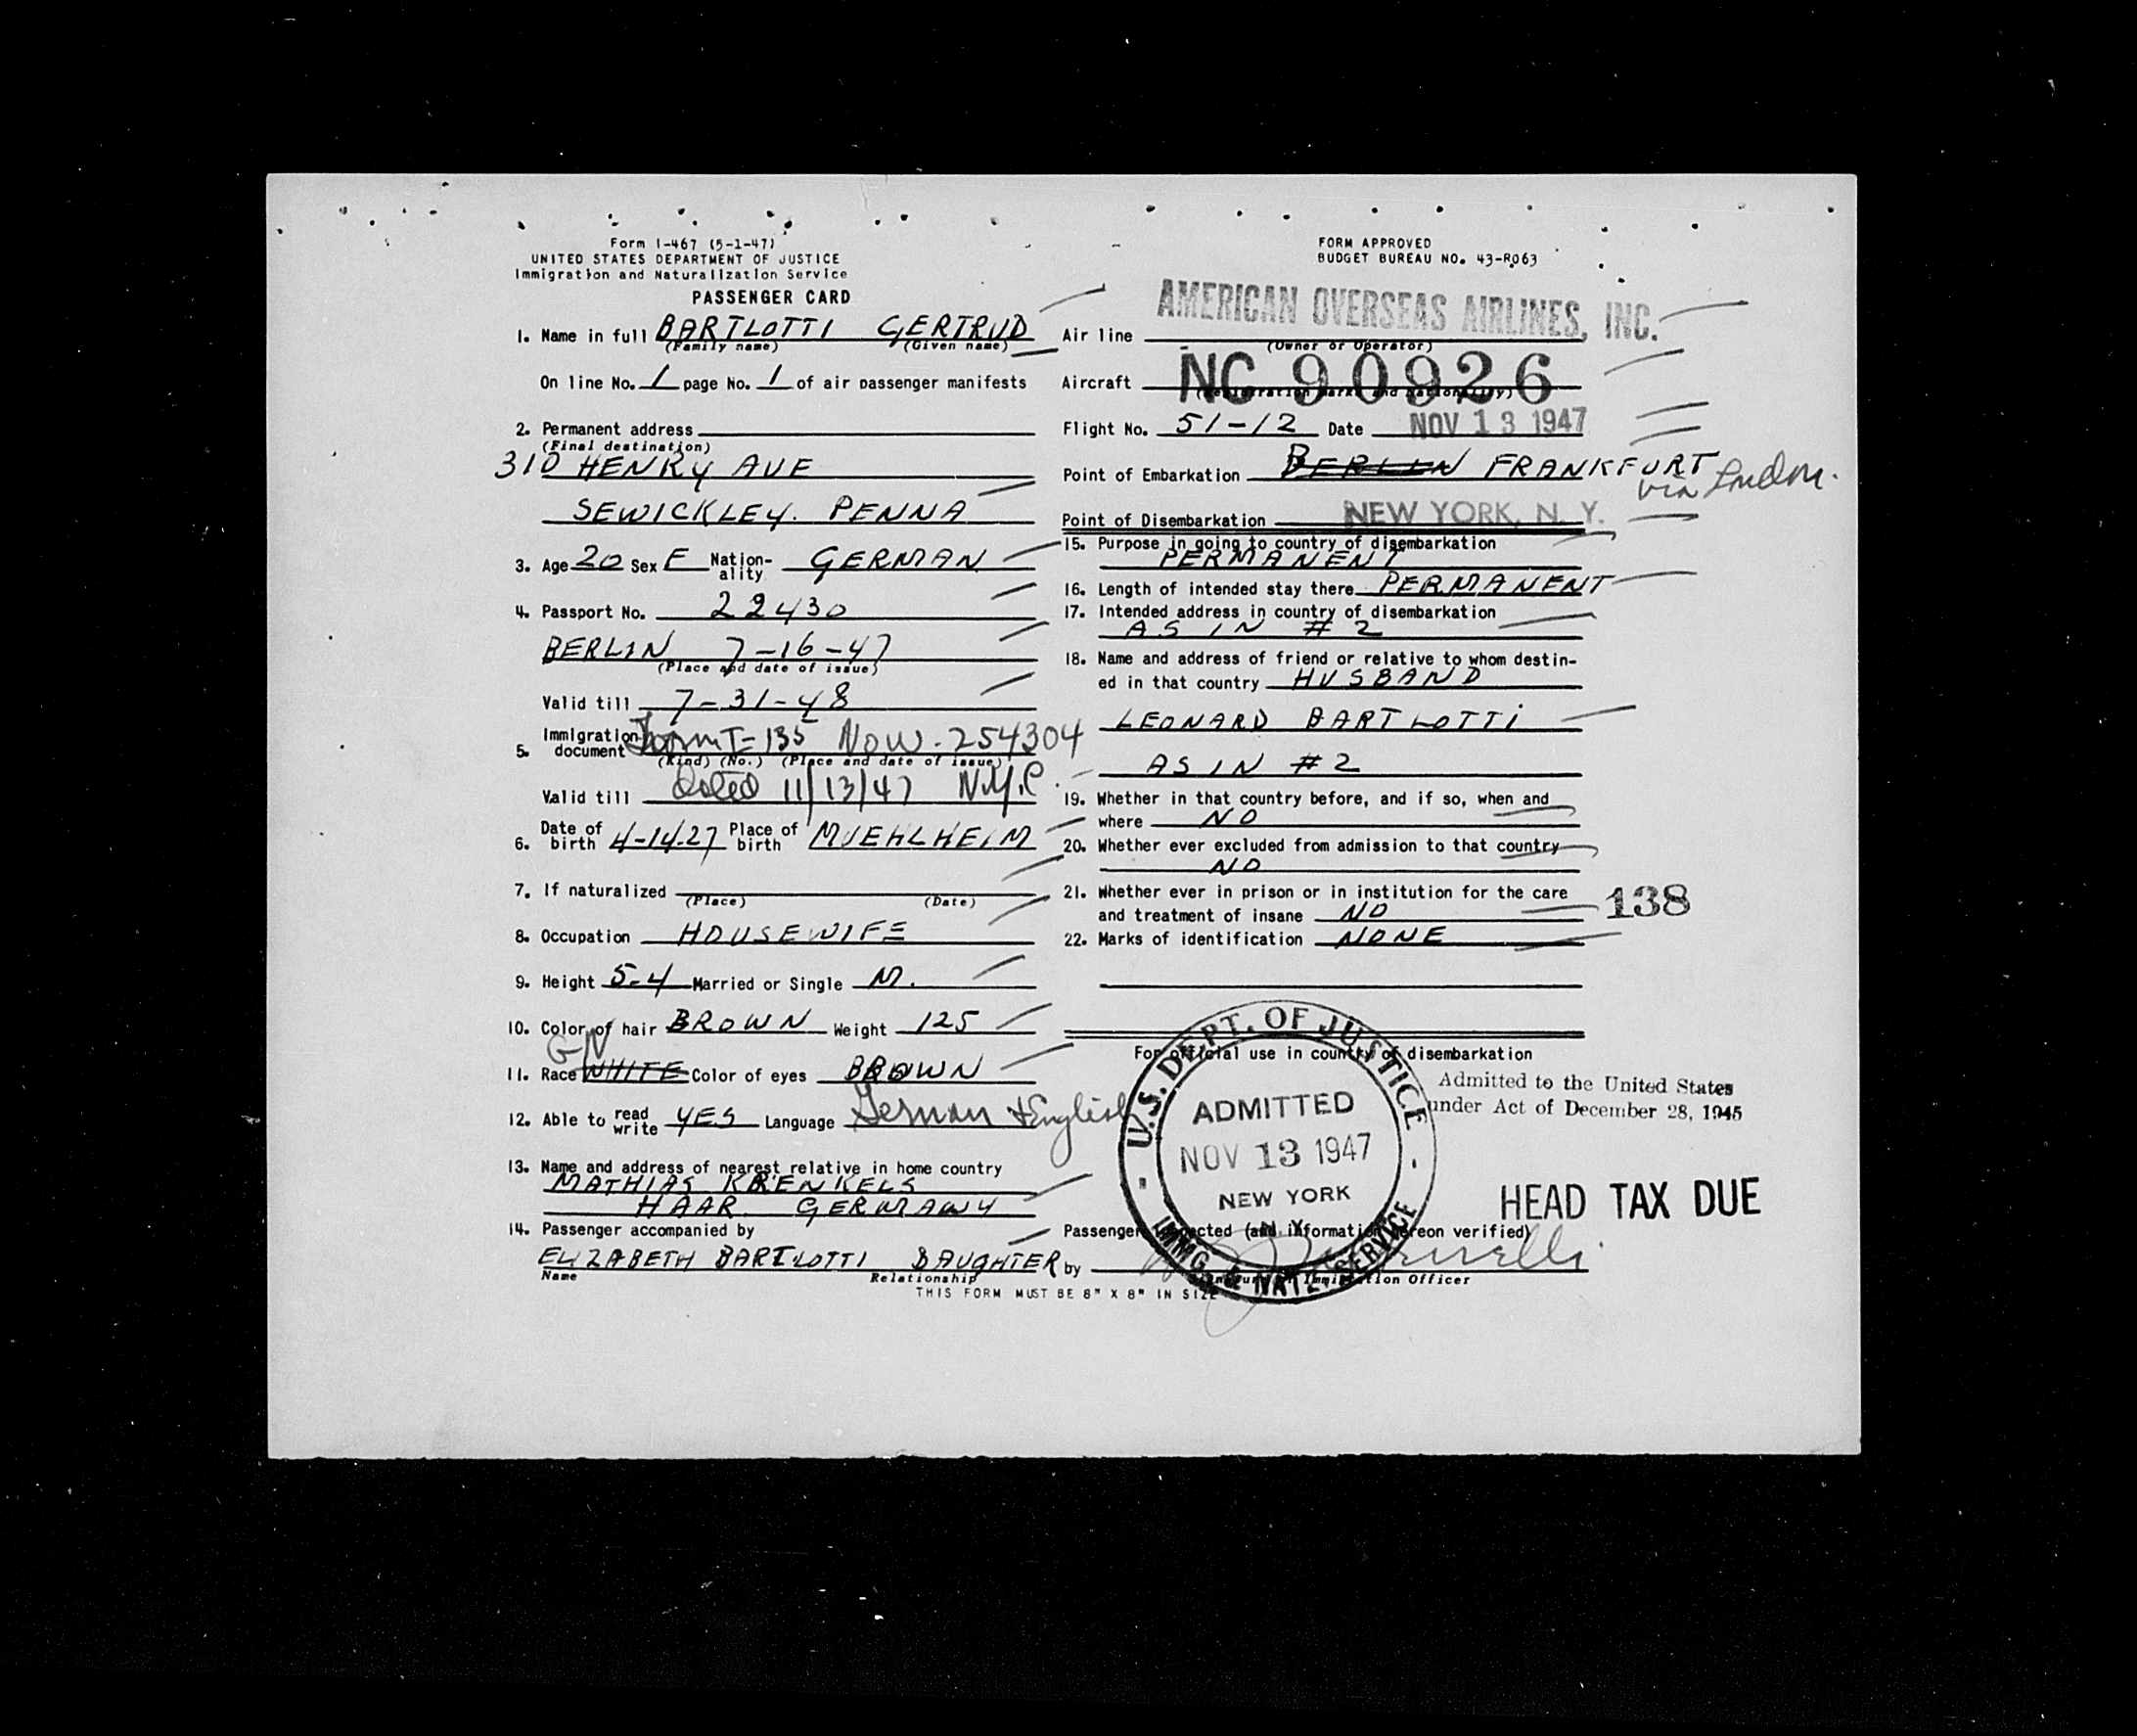 Form I-467 (5-1-47)
UNITED STATES DEPARTMENT OF JUSTICE
Immigration and Naturalization Service
PASSENGER CARD
FORM APPROVED
BUDGET BUREAU NO. 43-R063
1. Name in full BARTLOTTI GERTRUD
(Family name) (Given name)
On line No. 1 page No. 1 of air passenger manifests
2. Permanent address
(Final destination)
310 HENRY AVE
SEWICKLEY. PENNA
3. Age 20 Sex F Nation-ality GERMAN
4. Passport No. 22430
BERLIN 7-16-47
(Place and date of issue)
Valid till 7-31-48
5. Immigration document Form I-135 Now-254304
(Kind) (No.) (Place and date of issue)
Valid till Dated 11/13/47 N.Y.C.
6. Date of birth 4-14-27 Place of birth MUEHLHEIM
7. If naturalized
(Place) (Date)
8. Occupation HOUSEWIFE
9. Height 5-4 Married or Single M.
10. Color of hair BROWN Weight 125
GN
11. Race WHITE Color of eyes BROWN
12. Able to read write YES Language German & English
13. Name and address of nearest relative in home country
MATHIAS KRENKELS
HAAR GERMANY
14. Passenger accompanied by
ELIZABETH BARTLOTTI DAUGHTER
Name Relationship
THIS FORM MUST BE 8" X 8" IN SIZE
AMERICAN OVERSEAS AIRLINES, INC.
Air line
(Owner or Operator)
Aircraft NC 90926
(Registration marks and nationality)
Flight No. 51-12 Date NOV 13 1947
Point of Embarkation BERLIN FRANKFURT
via London.
Point of Disembarkation NEW YORK, N. Y.
15. Purpose in going to country of disembarkation
PERMANENT
16. Length of intended stay there PERMANENT
17. Intended address in country of disembarkation
AS IN # 2
18. Name and address of friend or relative to whom destin-
ed in that country HUSBAND
LEONARD BARTLOTTI
AS IN #2
19. Whether in that country before, and if so, when and
where NO
20. Whether ever excluded from admission to that country
NO
21. Whether ever in prison or in institution for the care
and treatment of insane NO
138
22. Marks of identification NONE
For official use in country of disembarkation
Admitted to the United States
under Act of December 28, 1945
U.S. DEPT. OF JUSTICE
ADMITTED
NOV 13 1947
NEW YORK
N.Y.
IMMG. & NATZ. SERVICE
HEAD TAX DUE
Passenger inspected (and information hereon verified)
by
Signature of Immigration Officer